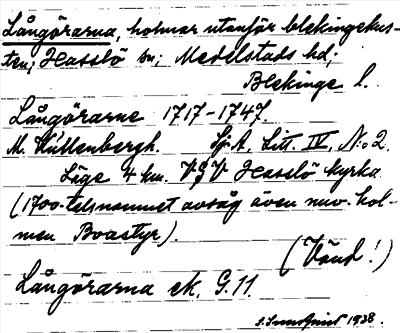 Långörarna, holmar utanför blekingekus-
ten, Hasslö sn, Medelstads hd,
Blekinge l.
Långörarne 1717-1747.
M. Küllenbergh. Sj. A. Litt. IV, N:o 2
Läge 4 km. VSV Hasslö kyrka
(1700-talsnamnet avsåg även nuv. hol-
men Boastyr).
(Vänd!)
Långörarna ek. G. 11.
S. Sundquist 1938.